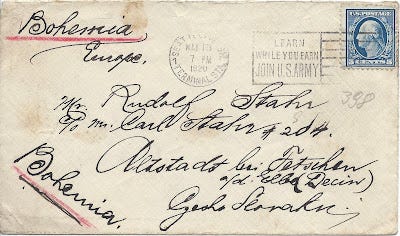 Bohemia
Europe.
MAR 18
7 PM
1920
TERMINAL STA.
LEARN
WHILE YOU EARN
JOIN U.S. ARMY
U.S. POSTAGE
398
Mr. Rudolf Stahr
c/o Mr. Carl Stahr #204.
Altstadt bei Tetschen
a/d. Elbe (Decin)
Czecho Slovakia
Bohemia.